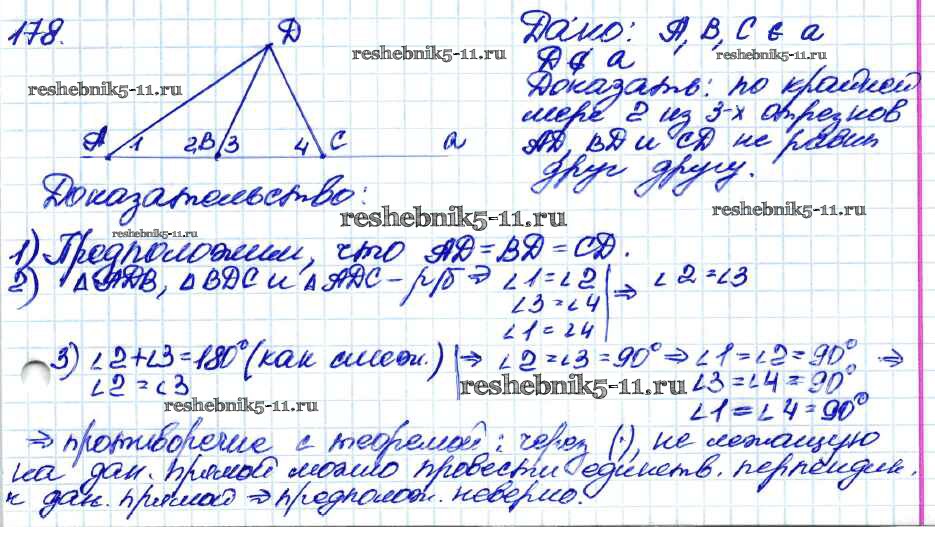 178.
D
A 1 2 B 3 4 C a
Дано: A, B, C ∈ a
D ∉ a
Доказать: по крайней
мере 2 из 3-х отрезков
AD, BD и CD не равны
друг другу.
reshebnik5-11.ru
reshebnik5-11.ru
reshebnik5-11.ru
Доказательство:
reshebnik5-11.ru
reshebnik5-11.ru
reshebnik5-11.ru
1) Предположим, что AD = BD = CD.
2) △ADB, △BDC и △ADC – р/б ⇒ ∠1 = ∠2 ⇒ ∠2 = ∠3
∠3 = ∠4
∠1 = ∠4
3) ∠2 + ∠3 = 180° (как смежн.) ⇒ ∠2 = ∠3 = 90° ⇒ ∠1 = ∠2 = 90° ⇒
∠2 = ∠3 ∠3 = ∠4 = 90°
∠1 = ∠4 = 90°
reshebnik5-11.ru
reshebnik5-11.ru
⇒ противоречие с теоремой: через (·), не лежащую
на дан. прямой можно провести единств. перпендик.
к дан. прямой ⇒ предполож. неверно.